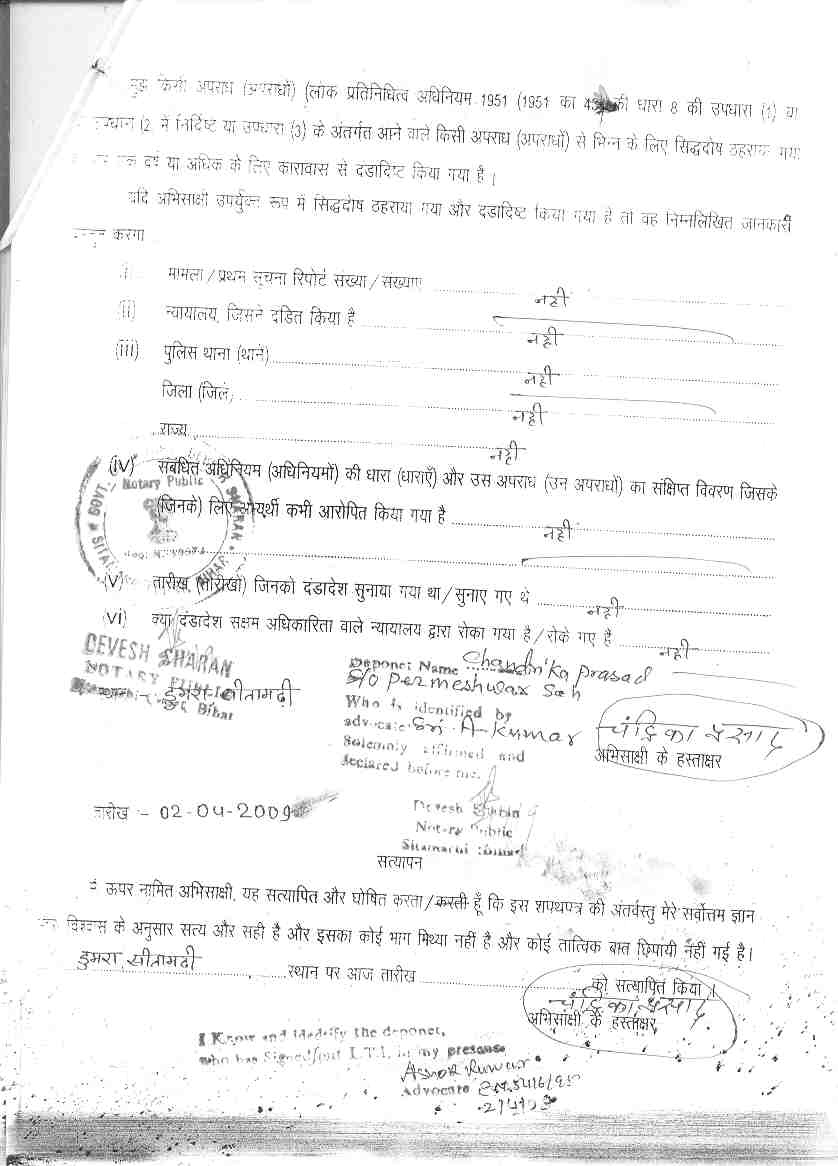 किसी अपराध (अपराधों) (लोक प्रतिनिधित्व अधिनियम 1951 (1951 का की धारा 8 की उपधारा (1) या
में निर्दिष्ट या उपधारा (3) के अंतर्गत आने वाले किसी अपराध (अपराधों) से भिन्न के लिए सिद्धदोष ठहराया गया
वर्ष या अधिक के लिए कारावास से दंडादिष्ट किया गया है ।
यदि अभिसाक्षी उपर्युक्त रूप में सिद्धदोष ठहराया गया और दंडादिष्ट किया गया है तो वह निम्नलिखित जानकारी
करेगा
(i) मामला / प्रथम सूचना रिपोर्ट संख्या / संख्याएं नहीं
(ii) न्यायालय, जिसने दंडित किया है नहीं
(iii) पुलिस थाना (थाने) नहीं
जिला (जिले) नहीं
राज्य नहीं
(iv) संबंधित अधिनियम (अधिनियमों) की धारा (धाराएँ) और उस अपराध (उन अपराधों) का संक्षिप्त विवरण जिसके
(जिनके) लिए अभ्यर्थी कभी आरोपित किया गया है नहीं
Notary Public
(v) तारीख (तारीखों) जिनको दंडादेश सुनाया गया था / सुनाए गए थे नहीं
(vi) क्या दंडादेश सक्षम अधिकारिता वाले न्यायालय द्वारा रोका गया है / रोके गए है नहीं
DEVESH SHARAN
NOTARY PUBLIC
Bihar
डुमरा सीतामढ़ी
Deponet Name Chandrika Prasad
S/O Permeshwar Sah
Who is identified by
advocate Sri A-Kumar
Solemnly affirmed and
declared before me.
चंद्रिका प्रसाद
अभिसाक्षी के हस्ताक्षर
तारीख :- 02-04-2009
Devesh Sharan
Notary Public
Sitamarhi
सत्यापन
ऊपर नामित अभिसाक्षी, यह सत्यापित और घोषित करता / करती हूँ कि इस शपथपत्र की अंतर्वस्तु मेरे सर्वोत्तम ज्ञान
विश्वास के अनुसार सत्य और सही है और इसका कोई भाग मिथ्या नहीं है और कोई तात्विक बात छिपायी नहीं गई है।
डुमरा, सीतामढ़ी स्थान पर आज तारीख को सत्यापित किया ।
चंद्रिका प्रसाद
अभिसाक्षी के हस्ताक्षर
I Know and idedify the deponet,
who has Signed/put L.T.I. in my presense
Ashok Kumar
Advocate